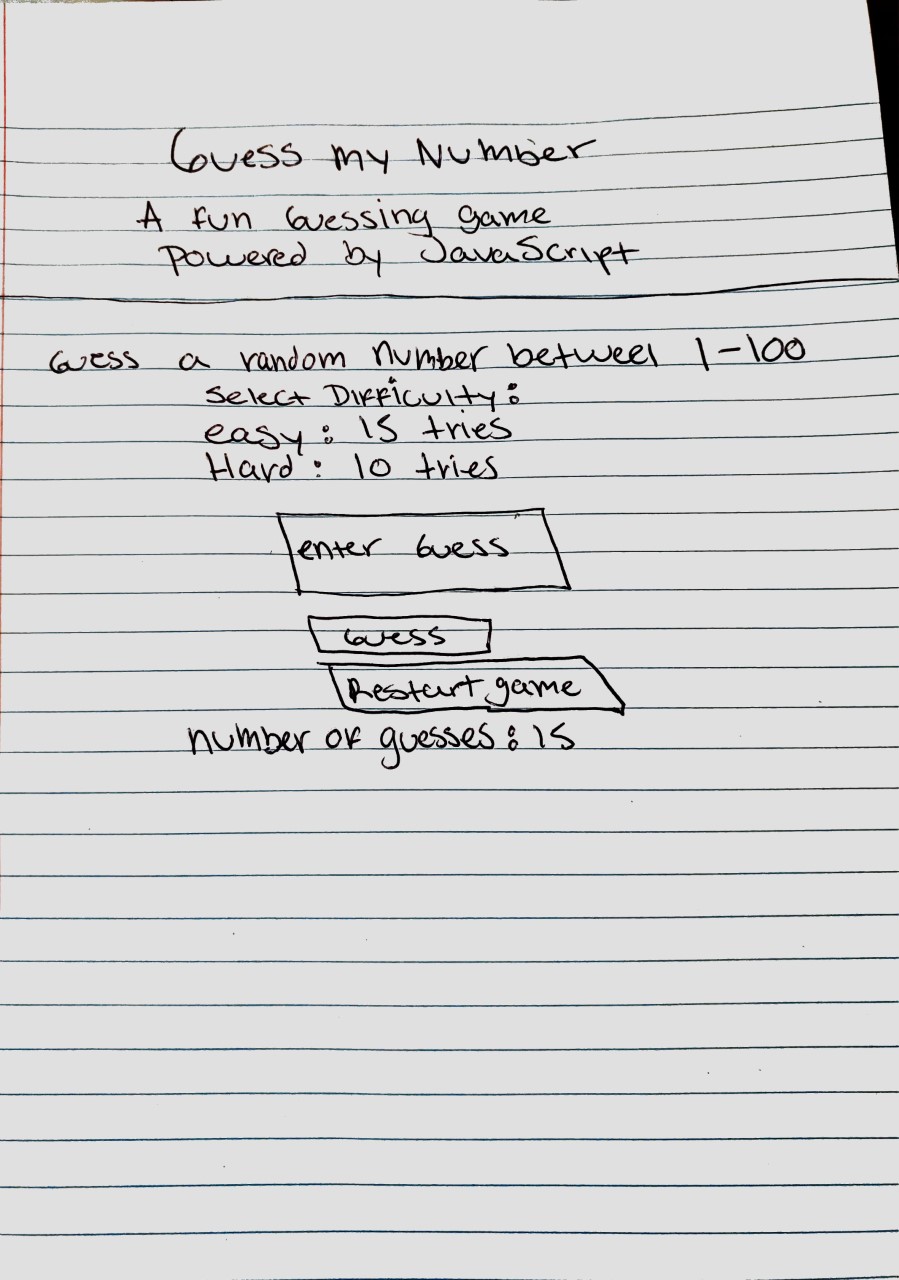 Guess my Number
A fun Guessing game
Powered by JavaScript
Guess a random number betweel 1-100
Select Difficulty:
easy: 15 tries
Hard: 10 tries
enter Guess
Guess
Restart game
number of guesses: 15